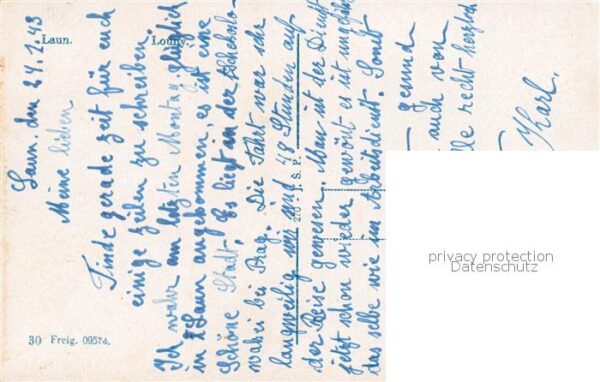 Laun. Louny.
Laun. den 24.1.43
Meine lieben
Finde gerade zeit für euch
einige zeilen zu schreiben.
Ich wahr am letzten Montag glücklich
in Laun angekommen, es ist eine
schöne Stadt, Es liegt an der
bei Prag. Die Fahrt war sehr
langweilig wir sind 48 Stunden auf
der Reise gewesen. Man ist der Dienst
jetzt schon wieder gewönt es ist ungefähr
das selbe wie im Arbeitsdienst. Sonst
gesund
auch von
recht herzlich
Karl.
270 · J. S. P.
30 Freig. 09574.
privacy protection
Datenschutz